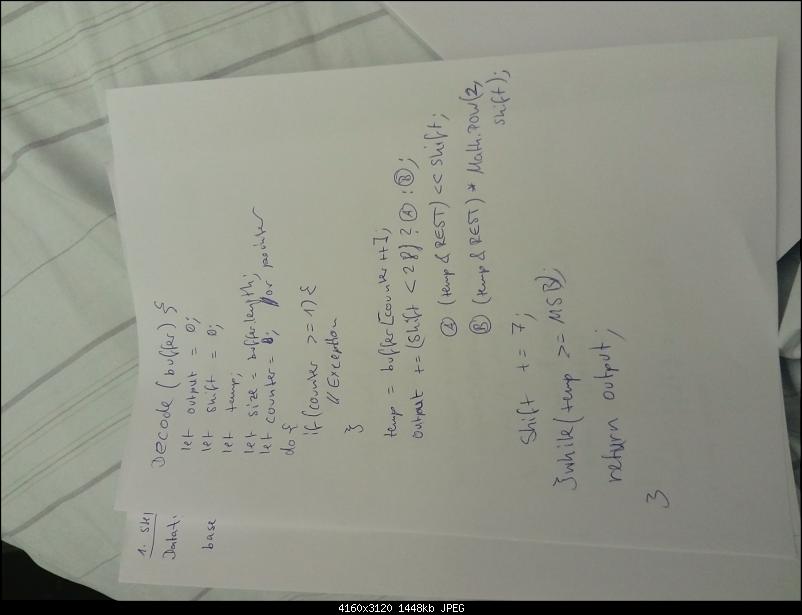 1. Ste
Datat.
base
Decode (buffer) {
let output = 0;
let shift = 0;
let temp;
let size = buffer.length;
let counter = 0; // or pointer
do {
if (counter >= 1) {
// Exception
}
temp = buffer[counter++];
output += (shift < 28) ? Ⓐ : Ⓑ;
Ⓐ (temp & REST) << shift;
Ⓑ (temp & REST) * Math.pow(2,
shift);
shift += 7;
} while (temp >= MSB);
return output;
}
4160x3120 1448kb JPEG